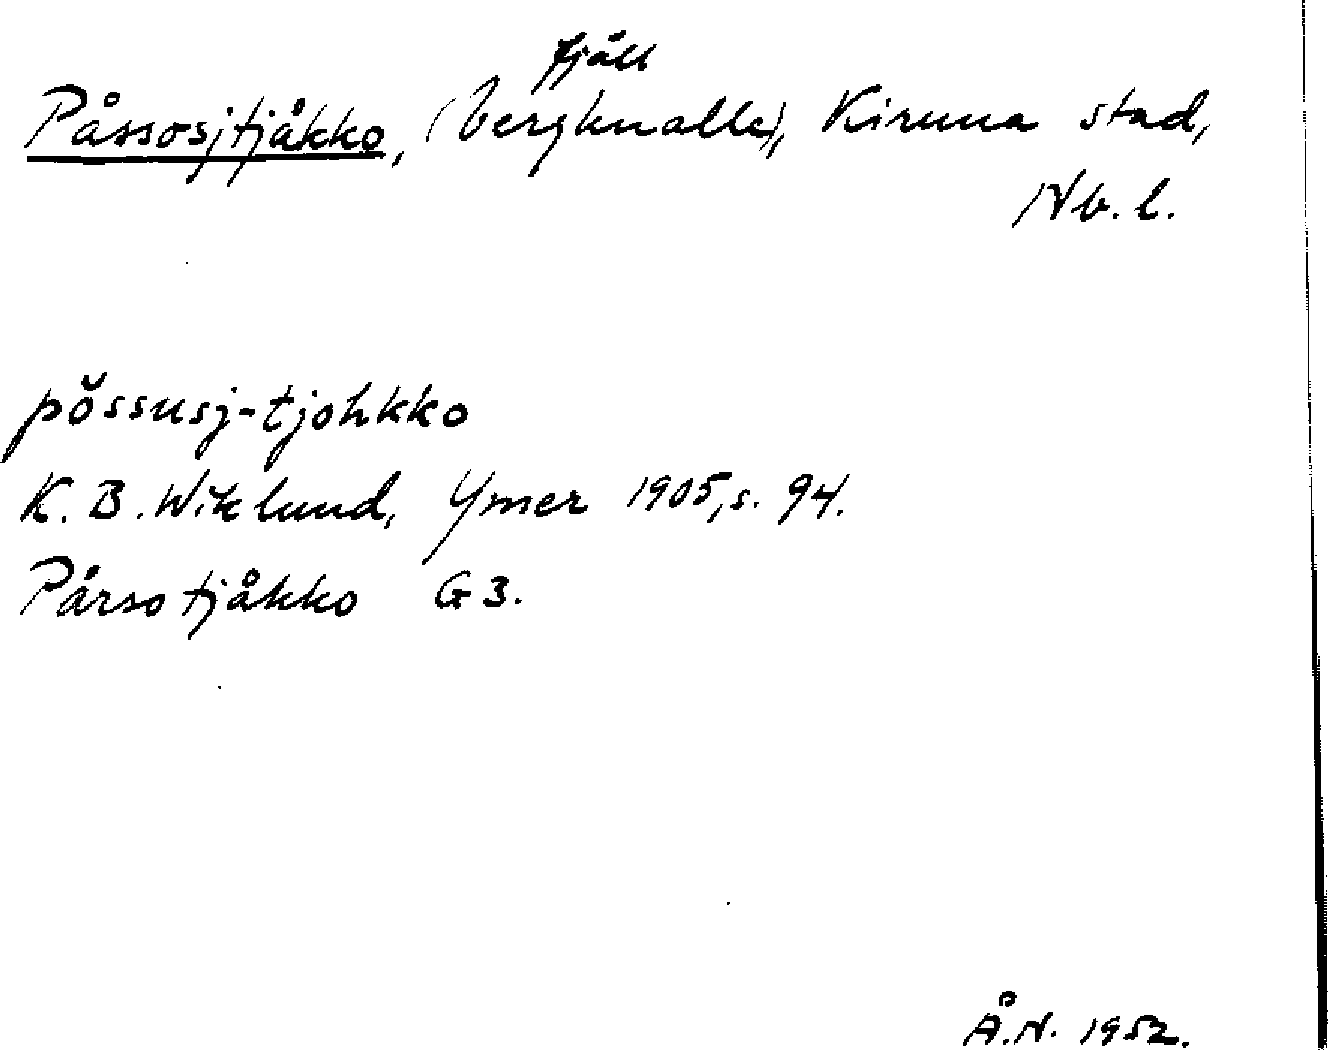 fjäll
Påssosjtjåkko, (bergknalle), Kiruna stad,
Nb. l.
pŏssusj-tjohkko
K. B. Wiklund, Ymer 1905, s. 94.
Pårsotjåkko G3.
Å.N. 1952.